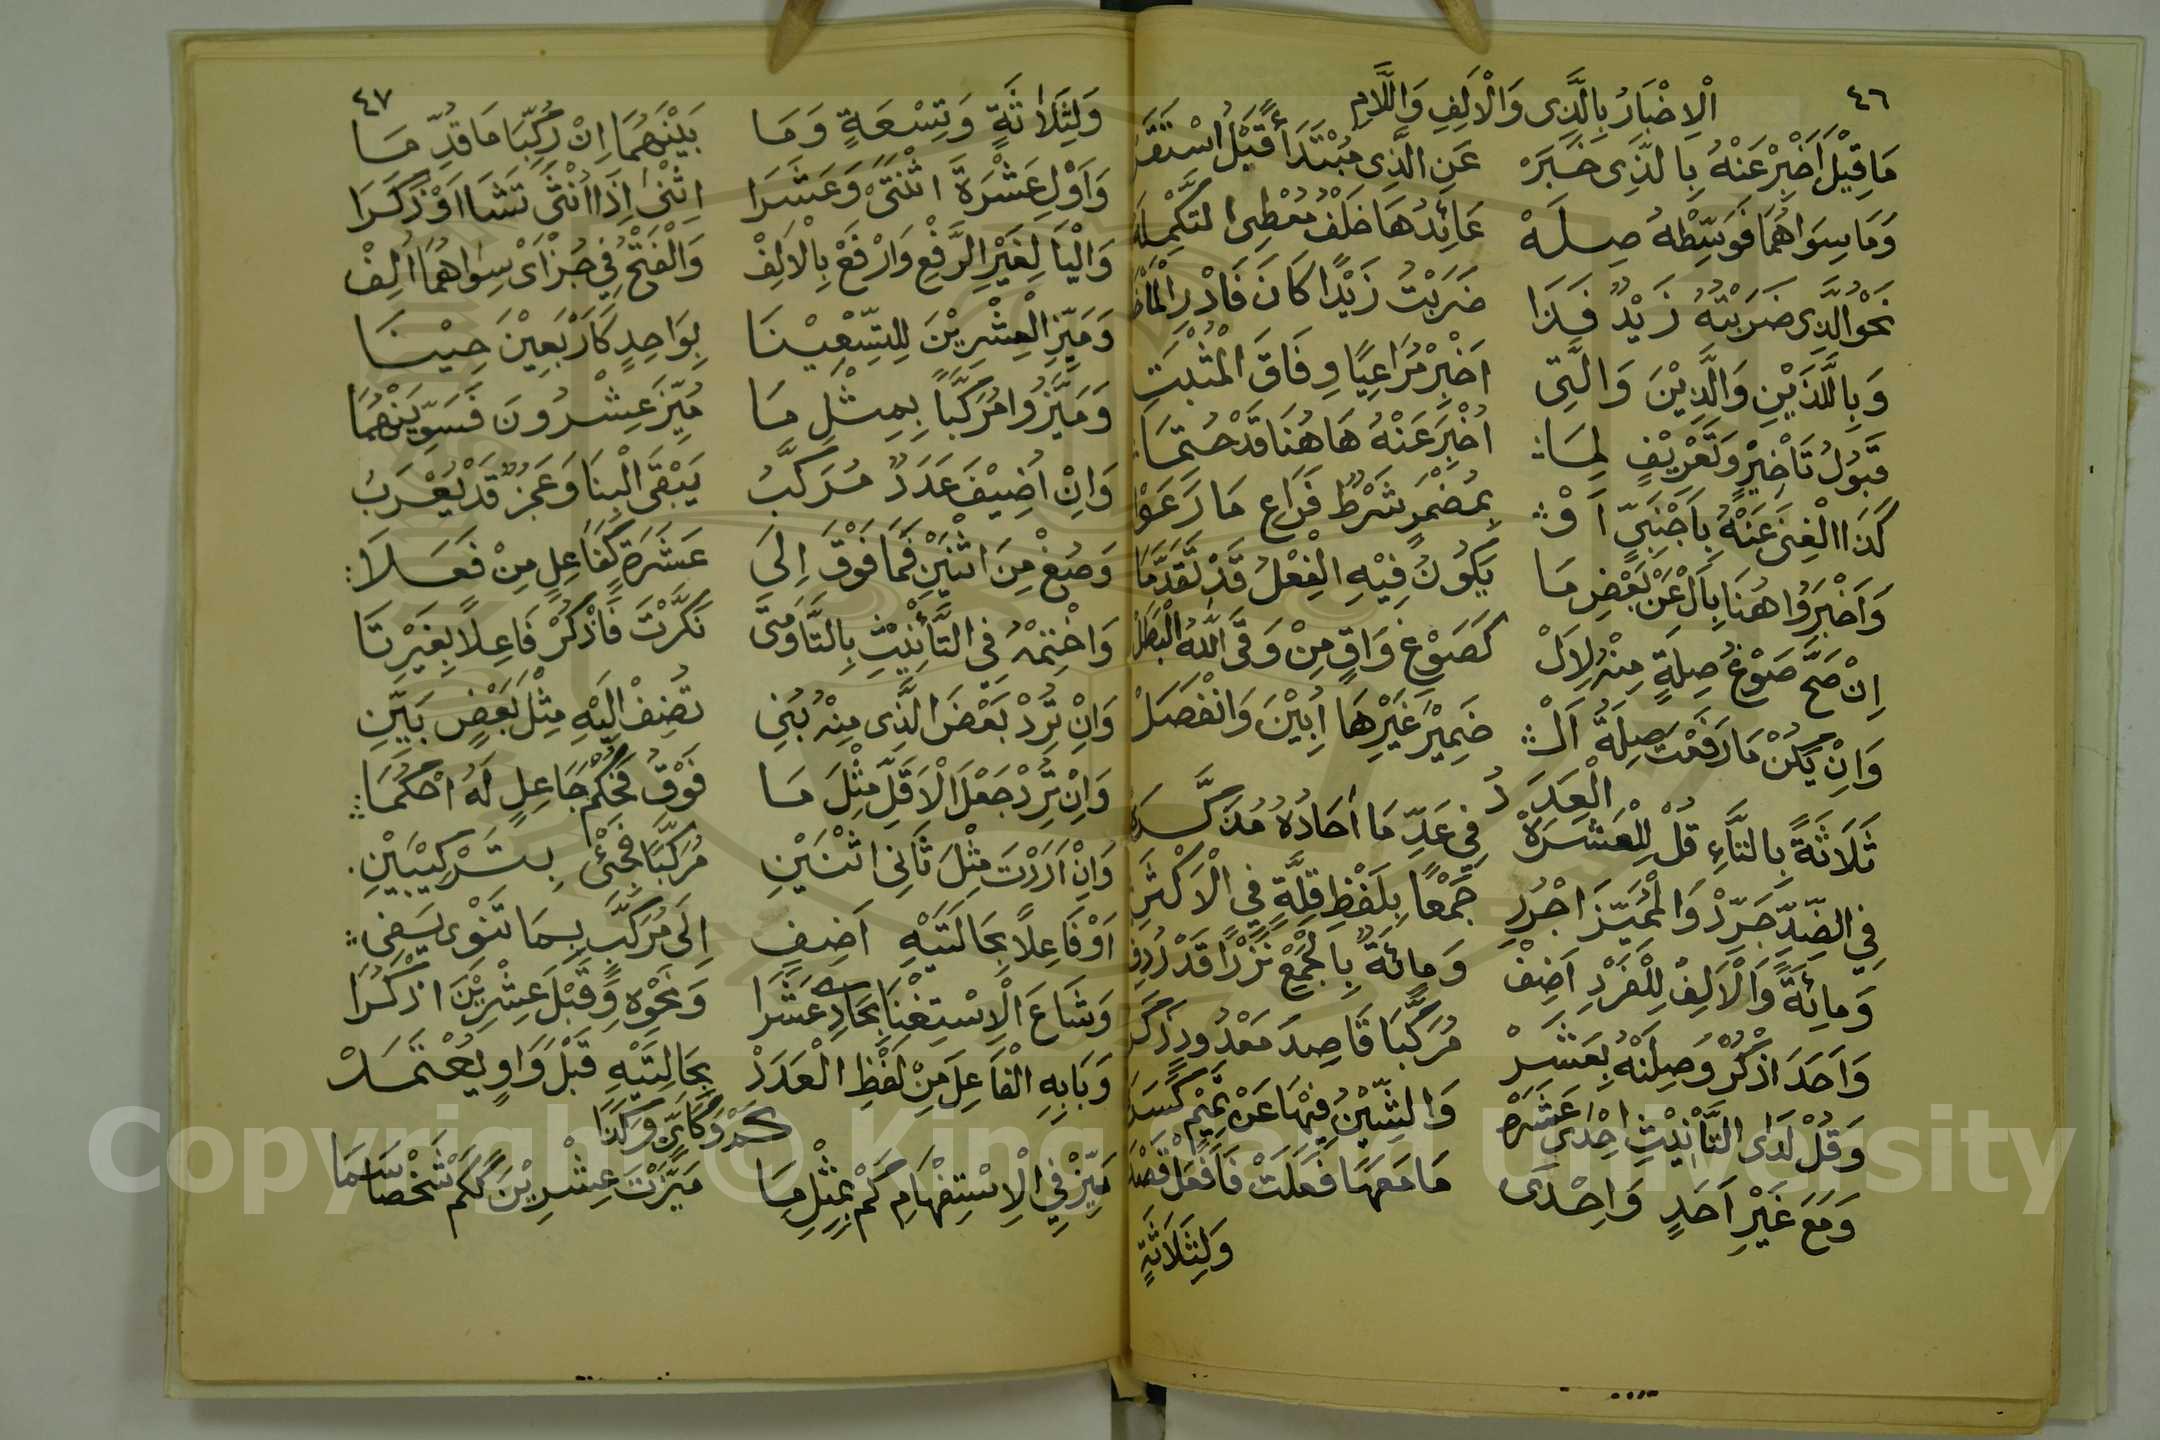 ٤٦
اْلاِخْبَارُ بِالَّذِى وَالْاَلِفِ وَاللَّامِ
مَا قِيْلَ اَخْبِرْ عَنْهُ بِالَّذِى خَبَرْ عَنِ الَّذِى مُبْتَدَأً قَبْلُ اسْتَقَرْ
وَمَا سِوَاهُمَا فَوَسِّطْهُ صِلَهْ عَائِدُهَا خَلْفُ مُعْطِى التَّكْمِلَهْ
نَحْوُ الَّذِى ضَرَبْتُهُ زَيْدٌ فَذَا ضَرَبْتُ زَيْدًا كَانَ فَادْرِ الْمَأْخَذَا
وَبِاللَّذَيْنِ وَالَّذِيْنَ وَالَّتِى اَخْبِرْ مُرَاعِيًا وِفَاقَ الْمُثْبَتِ
قَبُوْلُ تَأْخِيْرٍ وَتَعْرِيْفٍ لِمَا اُخْبِرَ عَنْهُ هَاهُنَا قَدْ حُتِمَا
كَذَا الْغِنَى عَنْهُ بِاَجْنَبِىٍّ اَوْ بِمُضْمَرٍ شَرْطٌ فَرَاعِ مَا رَعَوْا
وَاَخْبَرُوْا هُنَا بِاَلْ عَنْ بَعْضِ مَا يَكُوْنُ فِيْهِ الْفِعْلُ قَدْ تَقَدَّمَا
اِنْ صَحَّ صَوْغُ صِلَةٍ مِنْهُ لِاَلْ كَصَوْغِ وَاقٍ مِنْ وَقَى اللهُ الْبَطَلْ
وَاِنْ يَكُنْ مَا رَفَعَتْ صِلَةُ اَلْ ضَمِيْرَ غَيْرِهَا اُبِيْنَ وَانْفَصَلْ
الْعَدَدُ
ثَلَاثَةً بِالتَّاءِ قُلْ لِلْعَشَرَهْ فِى عَدِّ مَا اٰحَادُهُ مُذَكَّرَهْ
فِي الضِّدِّ جَرِّدْ وَالْمُمَيِّزَ اجْرُرِ جَمْعًا بِلَفْظِ قِلَّةٍ فِي الْاَكْثَرِ
وَمِائَةً وَالْاَلِفْ لِلْفَرْدِ اَضِفْ وَمِائَةٌ بِالْجَمْعِ نَزْرًا قَدْ رُدِفْ
وَاَحَدَ اذْكُرْ وَصِلَنْهُ بِعَشَرْ مُرَكَّبًا قَاصِدَ مَعْدُوْدٍ ذَكَرْ
وَقُلْ لَدَى التَّاْنِيْثِ اِحْدٰى عَشْرَهْ وَالشِّيْنُ فِيْهَا عَنْ تَمِيْمٍ كَسْرَهْ
وَمَعَ غَيْرِ اَحَدٍ وَاِحْدَى مَا مَعَهُمَا فَعَلْتَ فَافْعَلْ قَصْدَا
وَلِثَلَاثَةٍ
٤٧
وَلِثَلَاثَةٍ وَتِسْعَةٍ وَمَا بَيْنَهُمَا اِنْ رُكِّبَا مَا قُدِّمَا
وَاَوْلِ عَشْرَةَ اثْنَتَيْ وَعَشَرَا اِثْنَيْ اِذَا اُنْثَى تَشَا اَوْ ذَكَرَا
وَالْيَا لِغَيْرِ الرَّفْعِ وَارْفَعْ بِالْاَلِفْ وَالْفَتْحُ فِي جُزْأَيْ سِوَاهُمَا اُلِفْ
وَمَيِّزِ الْعِشْرِيْنَ لِلتِّسْعِيْنَا بِوَاحِدٍ كَاَرْبَعِيْنَ حِيْنَا
وَمَيَّزُوْا مُرَكَّبًا بِمِثْلِ مَا مُيِّزَ عِشْرُوْنَ فَسَوِّيَنْهُمَا
وَاِنْ اُضِيْفَ عَدَدٌ مُرَكَّبُ يَبْقَى الْبِنَا وَعَجُزٌ قَدْ يُعْرَبُ
وَصُغْ مِنَ اثْنَيْنِ فَمَا فَوْقَ اِلَى عَشَرَةٍ كَفَاعِلٍ مِنْ فَعَلَا
وَاخْتِمْهُ فِي التَّأْنِيْثِ بِالتَّا وَمَتَى ذَكَّرْتَ فَاذْكُرْ فَاعِلًا بِغَيْرِ تَا
وَاِنْ تُرِدْ بَعْضَ الَّذِى مِنْهُ بُنِي تُضِفْ اِلَيْهِ مِثْلَ بَعْضٍ بَيِّنِ
وَاِنْ تُرِدْ جَعْلَ الْاَقَلِّ مِثْلَ مَا فَوْقُ فَحُكْمَ جَاعِلٍ لَهُ احْكُمَا
وَاِنْ اَرَدْتَ مِثْلَ ثَانِى اثْنَيْنِ مُرَكَّبًا فَجِئْ بِتَرْكِيْبَيْنِ
اَوْ فَاعِلًا بِحَالَتَيْهِ اَضِفِ اِلَى مُرَكَّبٍ بِمَا تَنْوِى يَفِى
وَشَاعَ الْاِسْتِغْنَا بِحَادِى عَشَرَا وَنَحْوِهِ وَقَبْلَ عِشْرِيْنَ اذْكُرَا
وَبَابِهِ الْفَاعِلَ مِنْ لَفْظِ الْعَدَدْ بِحَالَتَيْهِ قَبْلَ وَاوٍ يُعْتَمَدْ
كَمْ وَكَاَيِّنْ وَكَذَا
مَيِّزْ فِي الْاِسْتِفْهَامِ كَمْ بِمِثْلِ مَا مَيَّزْتَ عِشْرِيْنَ كَكَمْ شَخْصًا سَمَا
Copyright © King Saud University